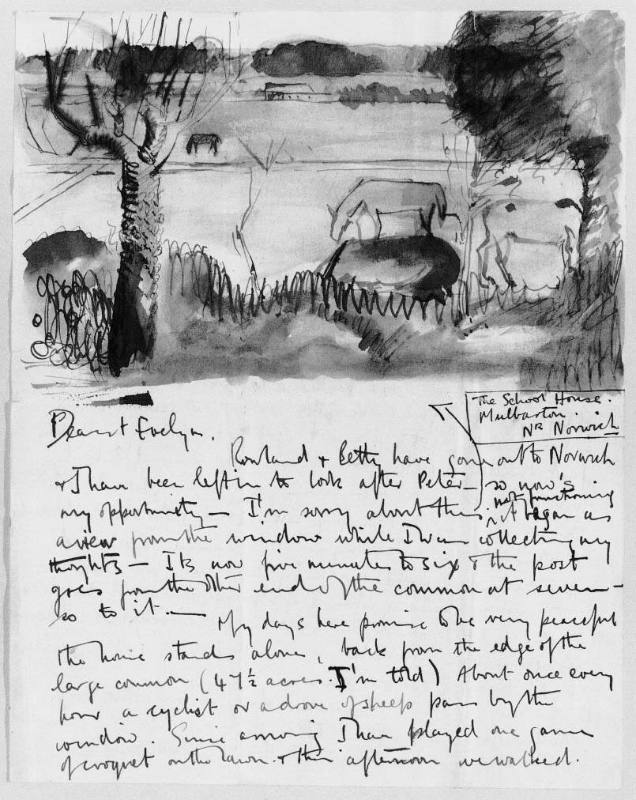 The School House.
Mulbarton.
Nr Norwich
Dearest Evelyn.
Rowland & Betty have gone out to Norwich
& I have been left in to look after Peter - so now's
my opportunity - I'm sorry about this, it began as
not functioning
a view from the window while I was collecting my
thoughts - Its now five minutes to six & the post
goes from the other end of the common at seven -
so to it. —
My days here promise to be very peaceful
the house stands alone, back from the edge of the
large common (47½ acres. I'm told) About once every
hour a cyclist or a drove of sheep pass by the
window. Since arriving I have played one game
of croquet on the lawn. & this afternoon we walked.